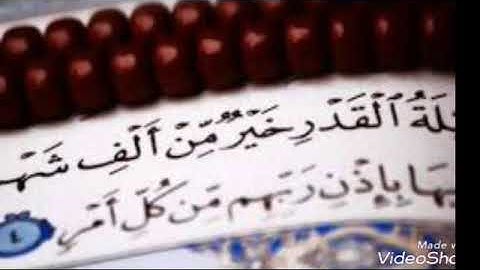 ـلَةُ ٱلْقَدْرِ خَيْرٌ مِّنْ أَلْفِ شَهْـ
ـيهَا بِإِذْنِ رَبِّهِم مِّن كُلِّ أَمْرٍ ٤
Made w
VideoSho